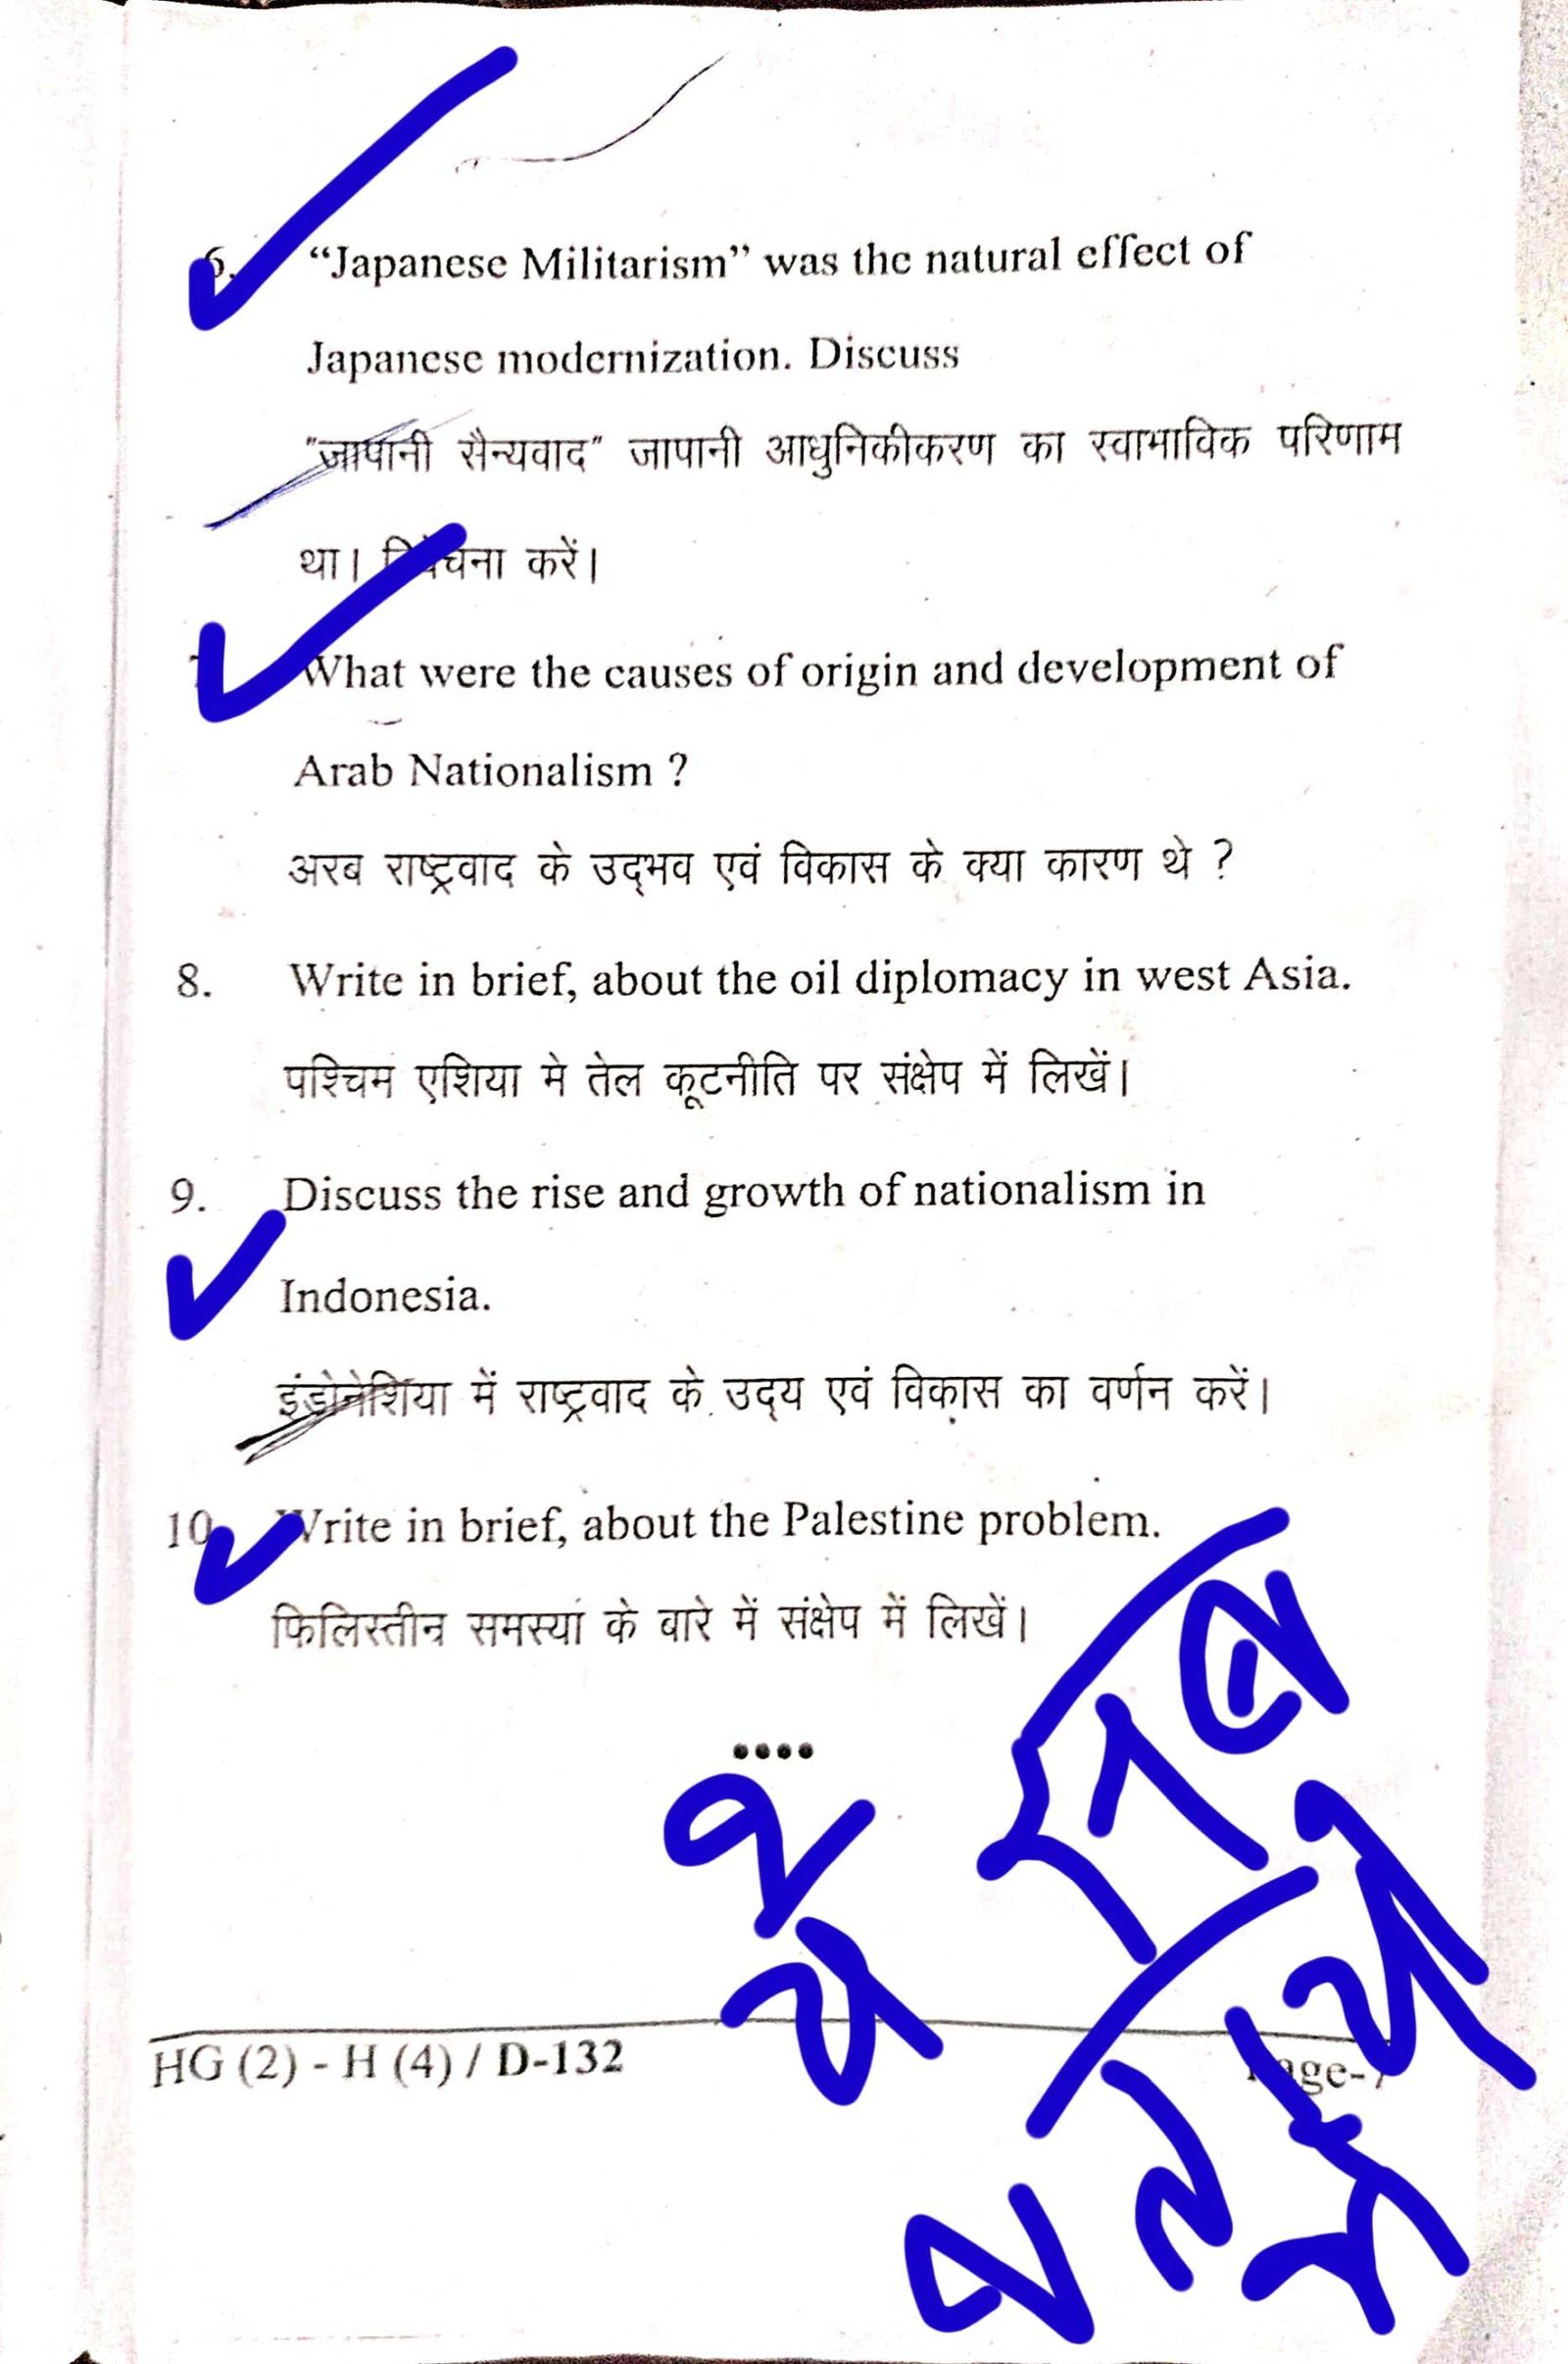 6. “Japanese Militarism” was the natural effect of
Japanese modernization. Discuss
"जापानी सैन्यवाद" जापानी आधुनिकीकरण का स्वाभाविक परिणाम
था। विवेचना करें।
What were the causes of origin and development of
Arab Nationalism ?
अरब राष्ट्रवाद के उद्‌भव एवं विकास के क्या कारण थे ?
8. Write in brief, about the oil diplomacy in west Asia.
पश्चिम एशिया मे तेल कूटनीति पर संक्षेप में लिखें।
9. Discuss the rise and growth of nationalism in
Indonesia.
इंडोनेशिया में राष्ट्रवाद के उद्‌य एवं विकास का वर्णन करें।
10. Write in brief, about the Palestine problem.
फिलिस्तीन समस्या के बारे में संक्षेप में लिखें।
ये सब
HG (2) - H (4) / D-132
Page-7